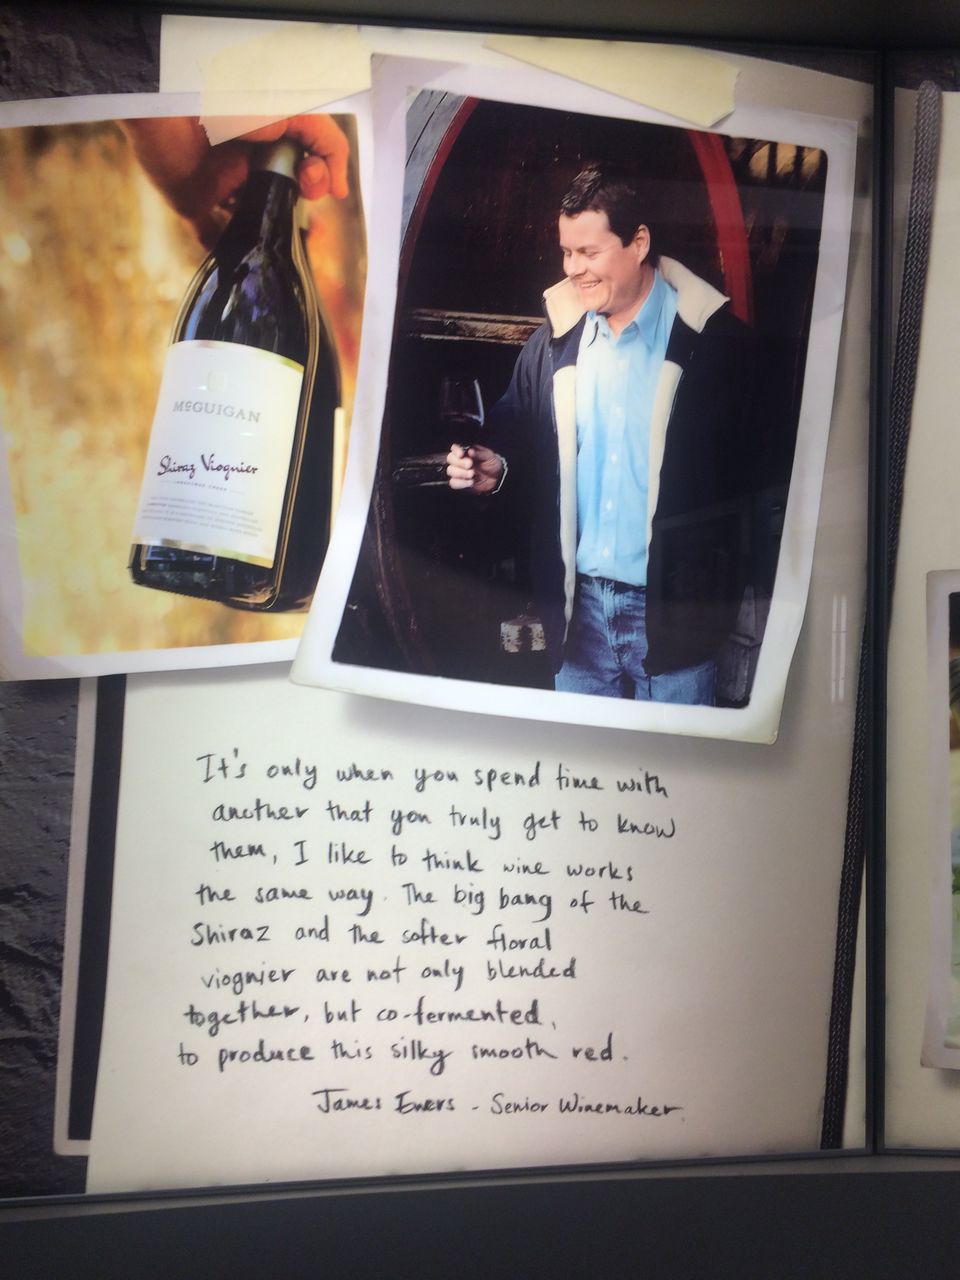 McGUIGAN
Shiraz Viognier
It's only when you spend time with
another that you truly get to know
them, I like to think wine works
the same way. The big bang of the
Shiraz and the softer floral
viognier are not only blended
together, but co-fermented,
to produce this silky smooth red.
James Evers - Senior Winemaker.